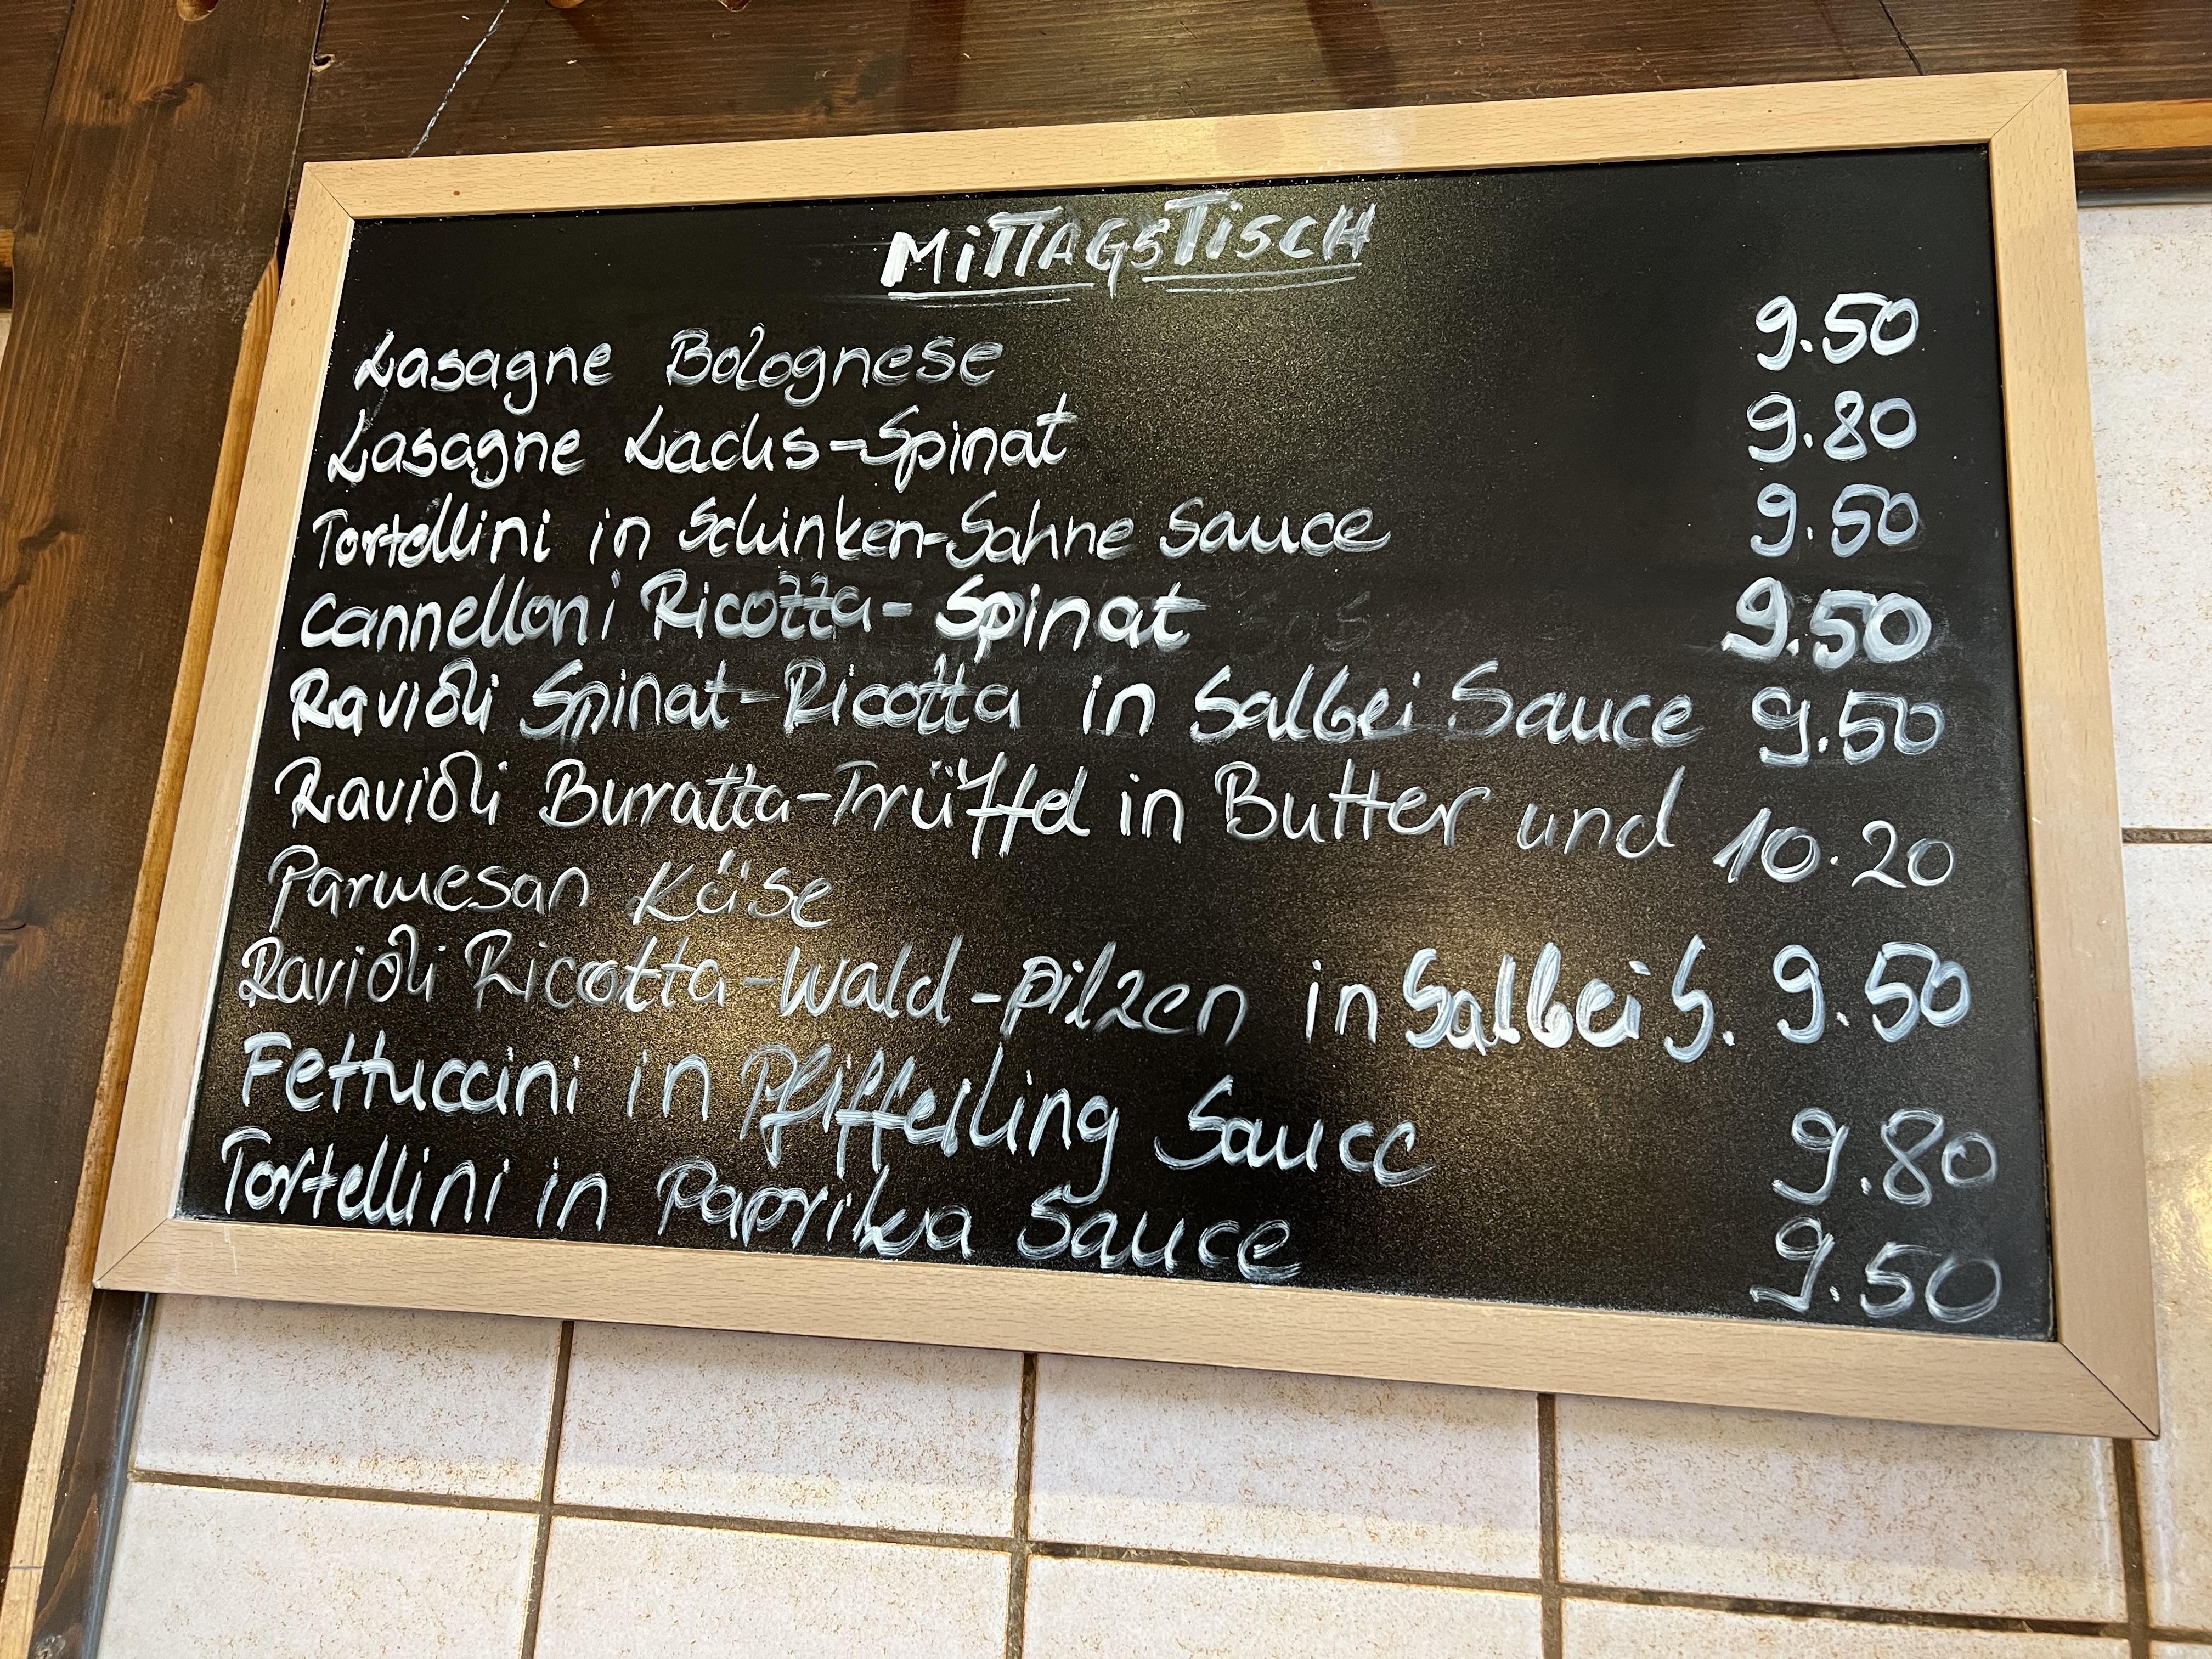 MiTTAGSTiSCH
Lasagne Bolognese 9.50
Lasagne Lachs-Spinat 9.80
Tortellini in Schinken-Sahne Sauce 9.50
Cannelloni Ricotta- Spinat 9.50
Ravioli Spinat-Ricotta in Salbei Sauce 9.50
Ravioli Burratta-Trüffel in Butter und 10.20
Parmesan Käse
Ravioli Ricotta-Wald-pilzen in Salbei S. 9.50
Fettuccini in Pfifferling Sauce 9.80
Tortellini in Paprika Sauce 9.50